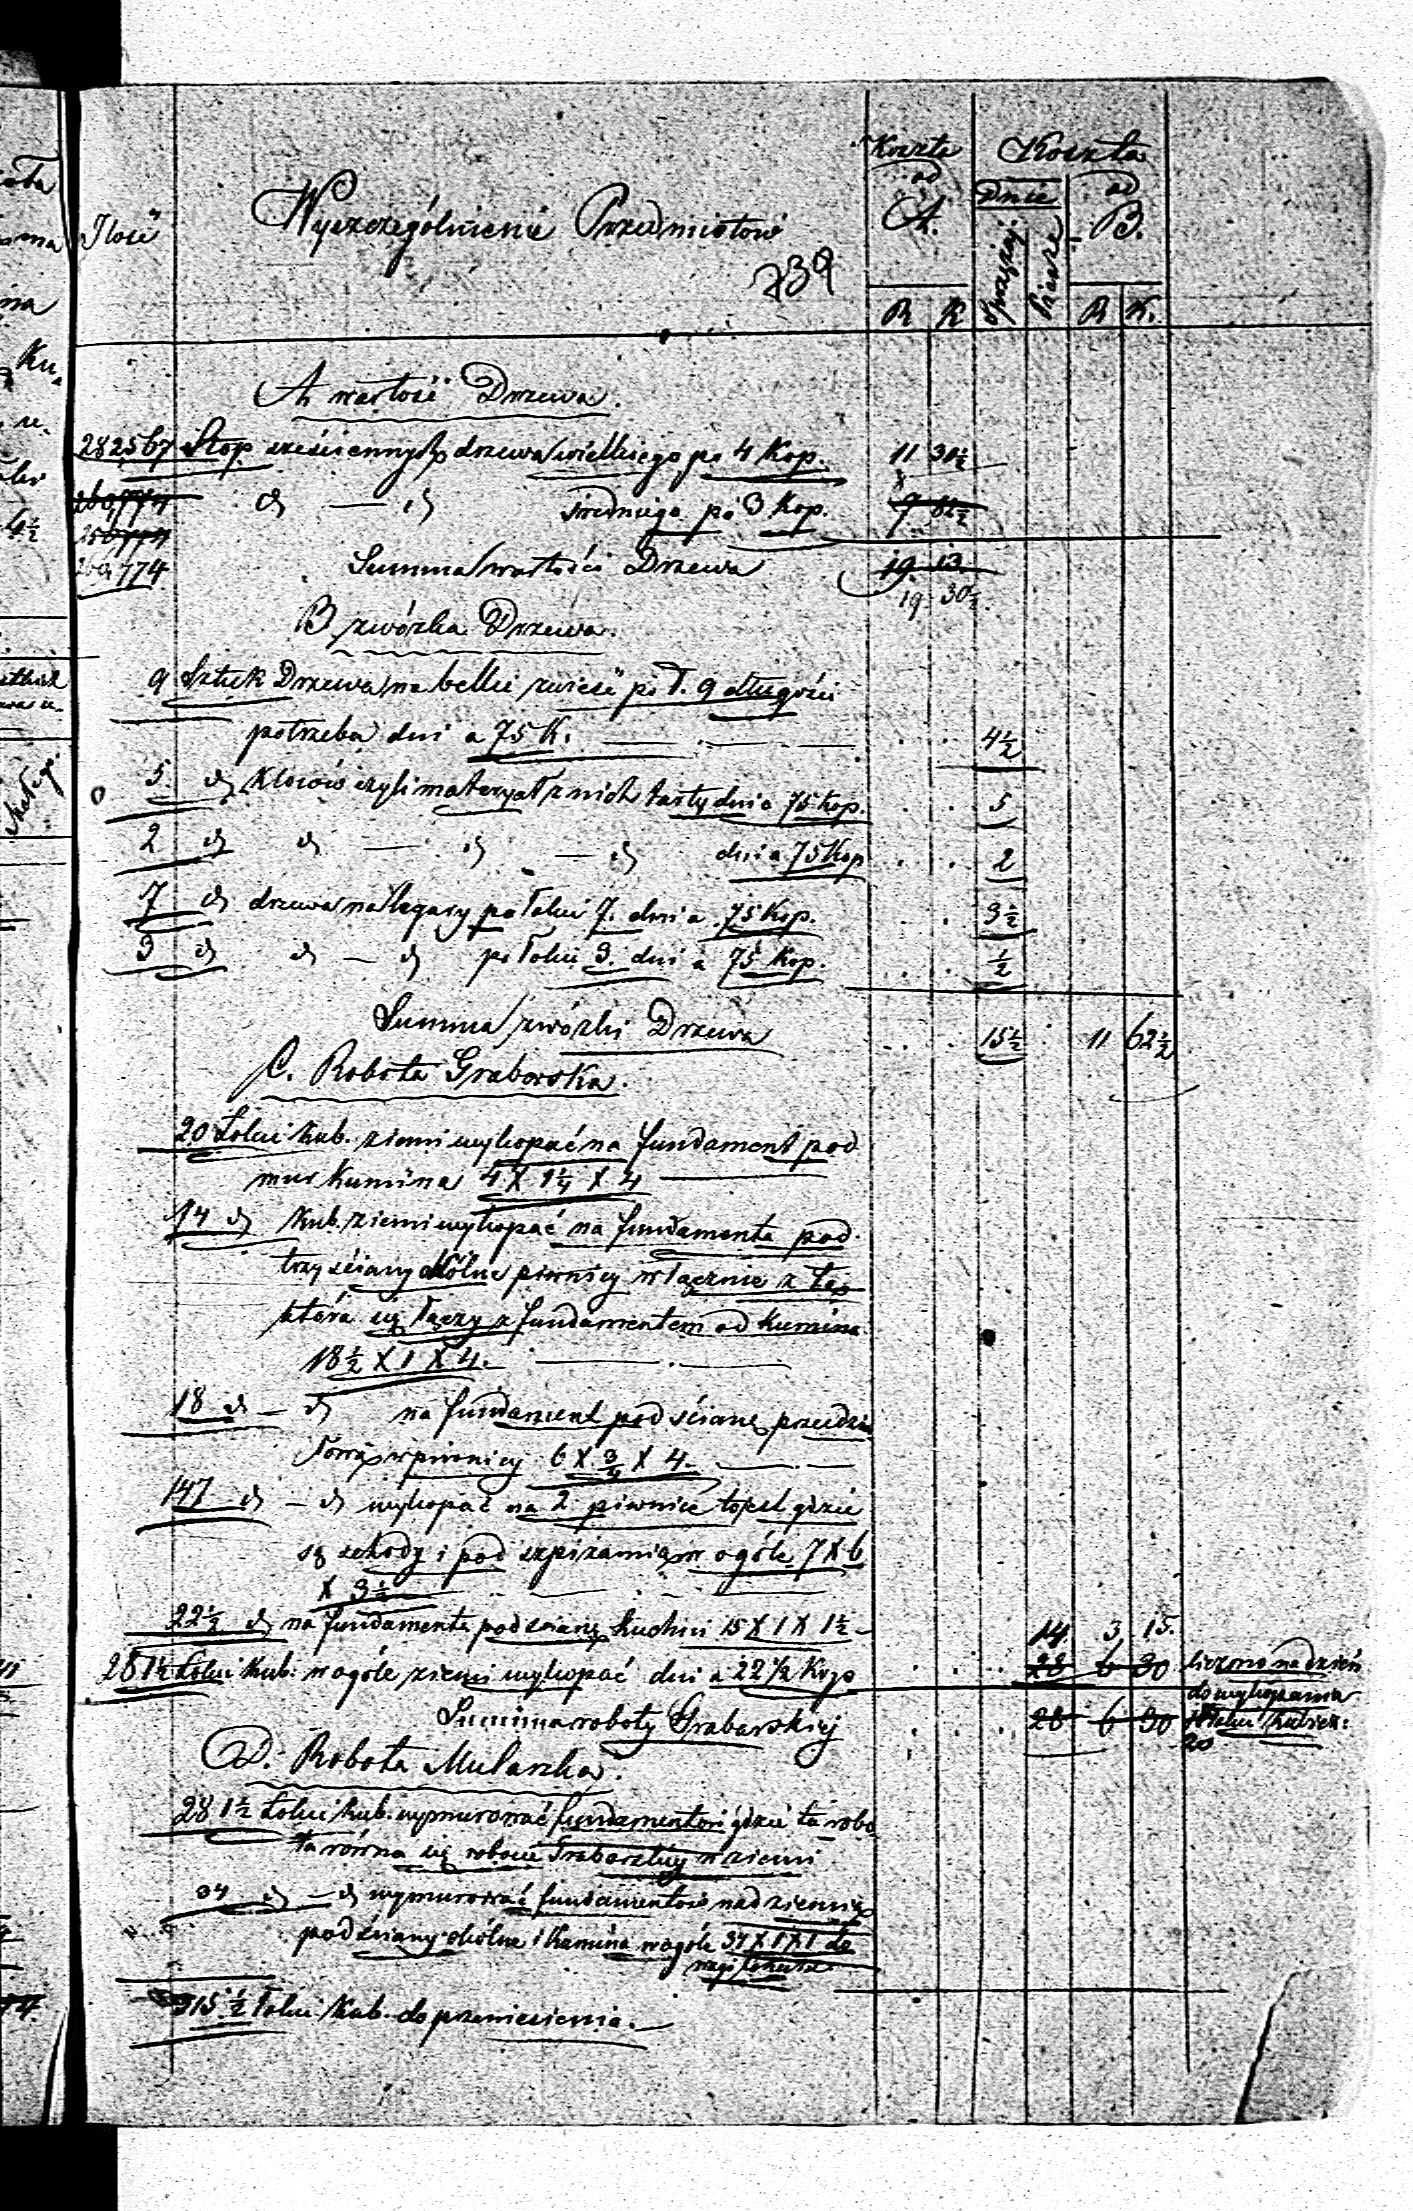 Ilość
Wyszczególnienie Przedmiotów
Koszta ad A.
Koszta ad B.
Dnie
sprzężaj
Piesze
739
R K R K.
A wartość Drzewa.
282567 Stop sześciennych drzewa wielkiego po 4 Kop. 11 30½
260,774 d — d średniego po 3 Kop. 7 82½
774
209,774 Summa wartości Drzewa 19. 13.
19 30½.
B zwózka Drzewa.
9 Sztuk Drzewa na belki zwieść po ł. 9 długości
potrzeba dni a 75 K. 4½
5 d Kloców czyli materyał z nich tarty dni a 75 Kop. 5
2 d d — d — d dni a 75 Kop 2
7 d drzewa na legary po łokci 7. dni a 75 Kop. 3½
3 d d — d po łokci 3. dni a 75 Kop. ½
Summa zwózki Drzewa 15½ 11 62½
C. Robota Graborska.
20 Łokci kub. ziemi wykopać na fundament pod
mur Kumina 4 X 1¼ X 4
74 d Kub. ziemi wykopać na fundamenta pod
trzy ściany okólne piwnicy włącznie z tą
która się łączy z fundamentem od Kumina
18½ X 1 X 4.
18 d — d na fundament pod ścianę przedzia
łową w piwnicy 6 X ¾ X 4.
147 d — d wykopać na 2 piwnice gdzie
są schody i pod szpiżarnią w ogóle 7 X 6
X 3½
22½ d na fundamenta pod ścianę kuchni 15 X 1 X 1½
14. 3 15.
281½ Łokci Kub: w ogóle ziemi wykopać dni a 22½ Kop 28 6 30 liczono na dzień
do wykopania
Summa roboty Grabarskiej 28 6 30 łokci kubicz:
20
D. Robota Mularska.
281½ Łokci kub. wymurować fundamentów gdzie ta robo
ta równa się robocie Grabarskiej w ziemi
34 d — d wymurować fundamentów nad ziemią
pod ściany okólne i kamina w ogóle 37 X 1 X 1 do
315½ Łokci Kub. do przeniesienia.